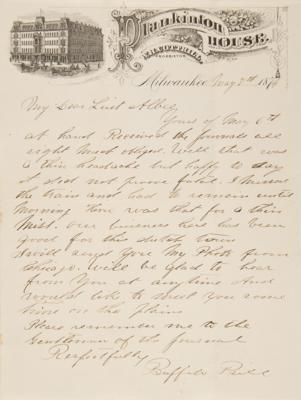 Plankinton
HOUSE,
PROPRIETOR
Milwaukee May 8th 187
My Dear Lieut
Yours of May 6th
at hand Received the journals all
right Much obliged. Well that was
a thin headache but happy to say
it did not prove fatal. I missed
the train and had to remain until
morning how was that for a thin
Mist. our business here has been
good for this dutch town
I will send you My Photo from
Chicago. Will be glad to hear
from you at any time And
would like to meet you some
time on the plains
Please remember me to the
Gentlemen of the journal
Respectfully
Buffalo Bill